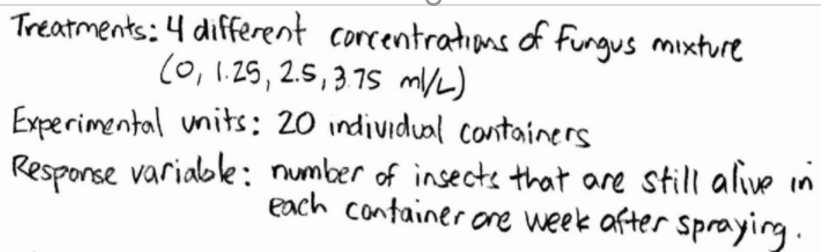 Treatments: 4 different concentrations of fungus mixture
(0, 1.25, 2.5, 3.75 ml/L)
Experimental units: 20 individual containers
Response variable: number of insects that are still alive in
each container one week after spraying.